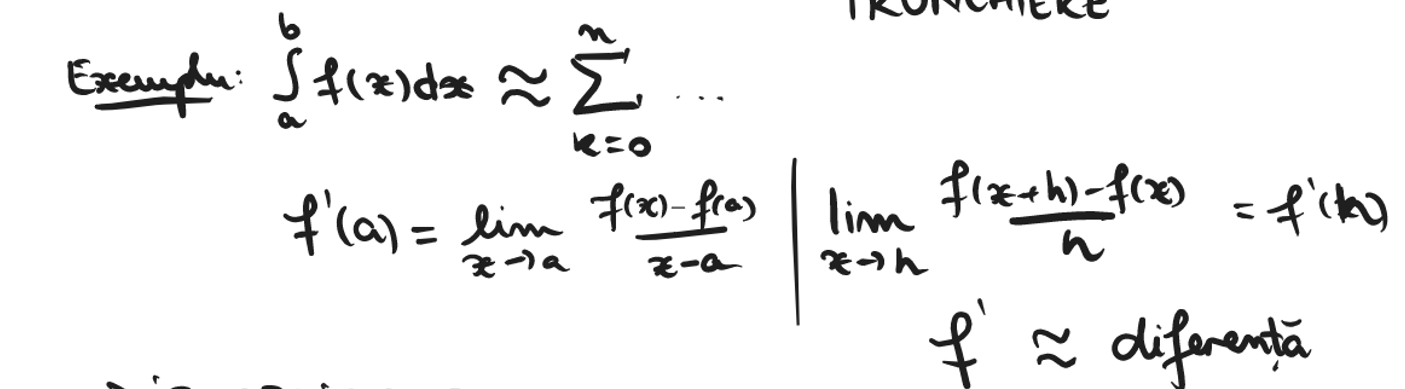 TRUNCHIERE
Exemplu: ∫_a^b f(x)dx ≈ ∑_{k=0}^n ...
f'(a) = lim_{x→a} (f(x)-f(a))/(x-a) | lim_{x→h} (f(x+h)-f(x))/h = f'(h)
f' ≈ diferență